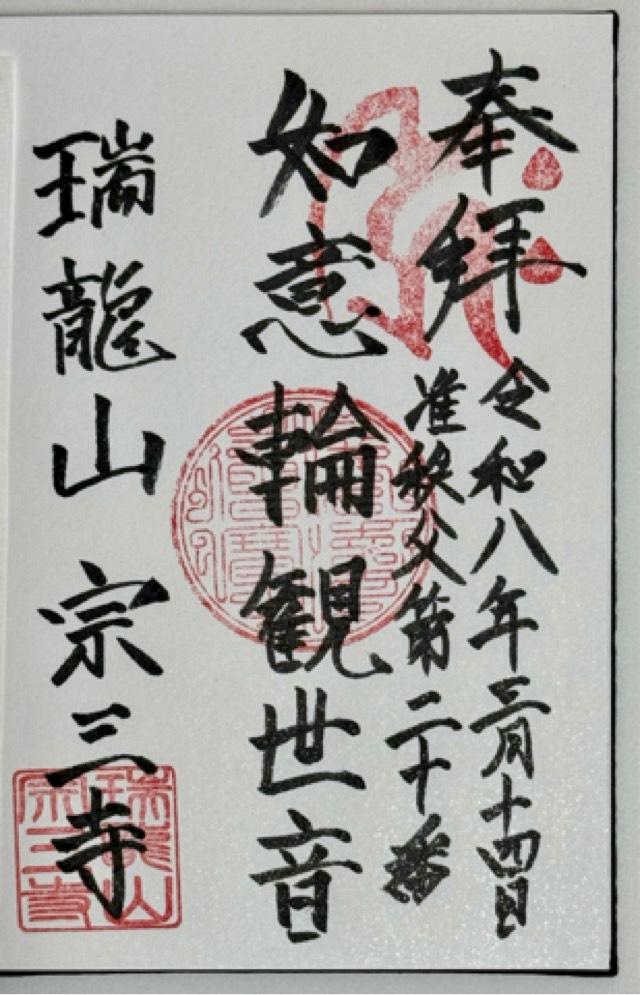 奉拝
令和八年三月十四日
准秩父第二十番
如意輪観世音
瑞龍山 宗三寺
瑞龍山
宗三寺